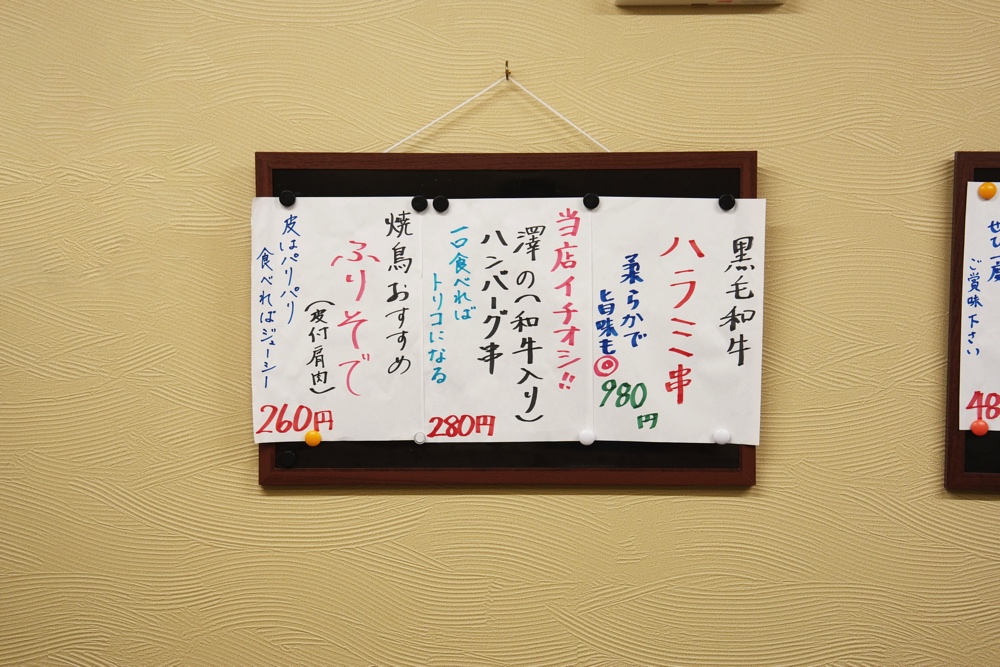 黒毛和牛
ハラミ串
柔らかで
旨味も◎
980
円
当店イチオシ!!
澤の(和牛入り)
ハンバーグ串
一口食べれば
トリコになる
280円
焼鳥おすすめ
ふりそで
(皮付肩肉)
皮はパリパリ
食べればジューシー
260円
ぜひ一度
ご賞味下さい
48